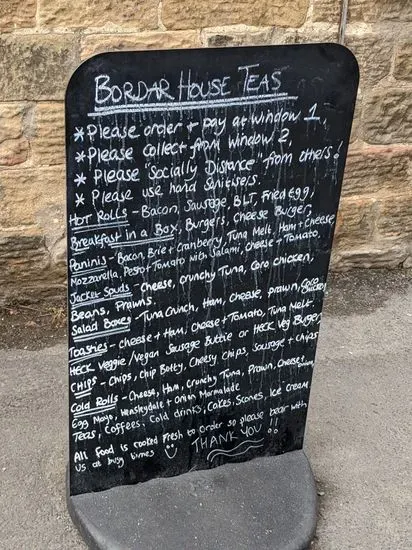 BORDAR HOUSE TEAS
* Please order + Pay at window 1,
* Please collect from window 2,
* Please "Socially Distance" from others!
* Please use hand Sanitisers.
HOT ROLLS - Bacon, Sausage, BLT, Fried egg,
Breakfast in a Box, Burgers, Cheese Burger,
Paninis - Bacon, Brie + Cranberry, Tuna Melt, Ham + Cheese
Mozzarella, Pesto + Tomato with Salami, Cheese + Tomato.
Jacket Spuds - Cheese, crunchy Tuna, Coro chicken,
Beans, Prawns.
Salad Boxes - Tuna Crunch, Ham, Cheese, prawn, Coro Chicken
Toasties - Cheese + Ham, Cheese + Tomato, Tuna Melt.
HECK Veggie/Vegan Sausage Buttie or HECK Veg Burger
CHIPS - Chips, Chip Botty, Cheesy Chips, Sausage + Chips
Cold Rolls - Cheese, Ham, Crunchy Tuna, Prawn, Cheese +
Egg Mayo, Wensleydale + Onion Marmalade
Teas, Coffees, Cold drinks, Cakes, Scones, Ice Cream
All Food is cooked Fresh to Order so please bear with
us at busy times THANK YOU!!